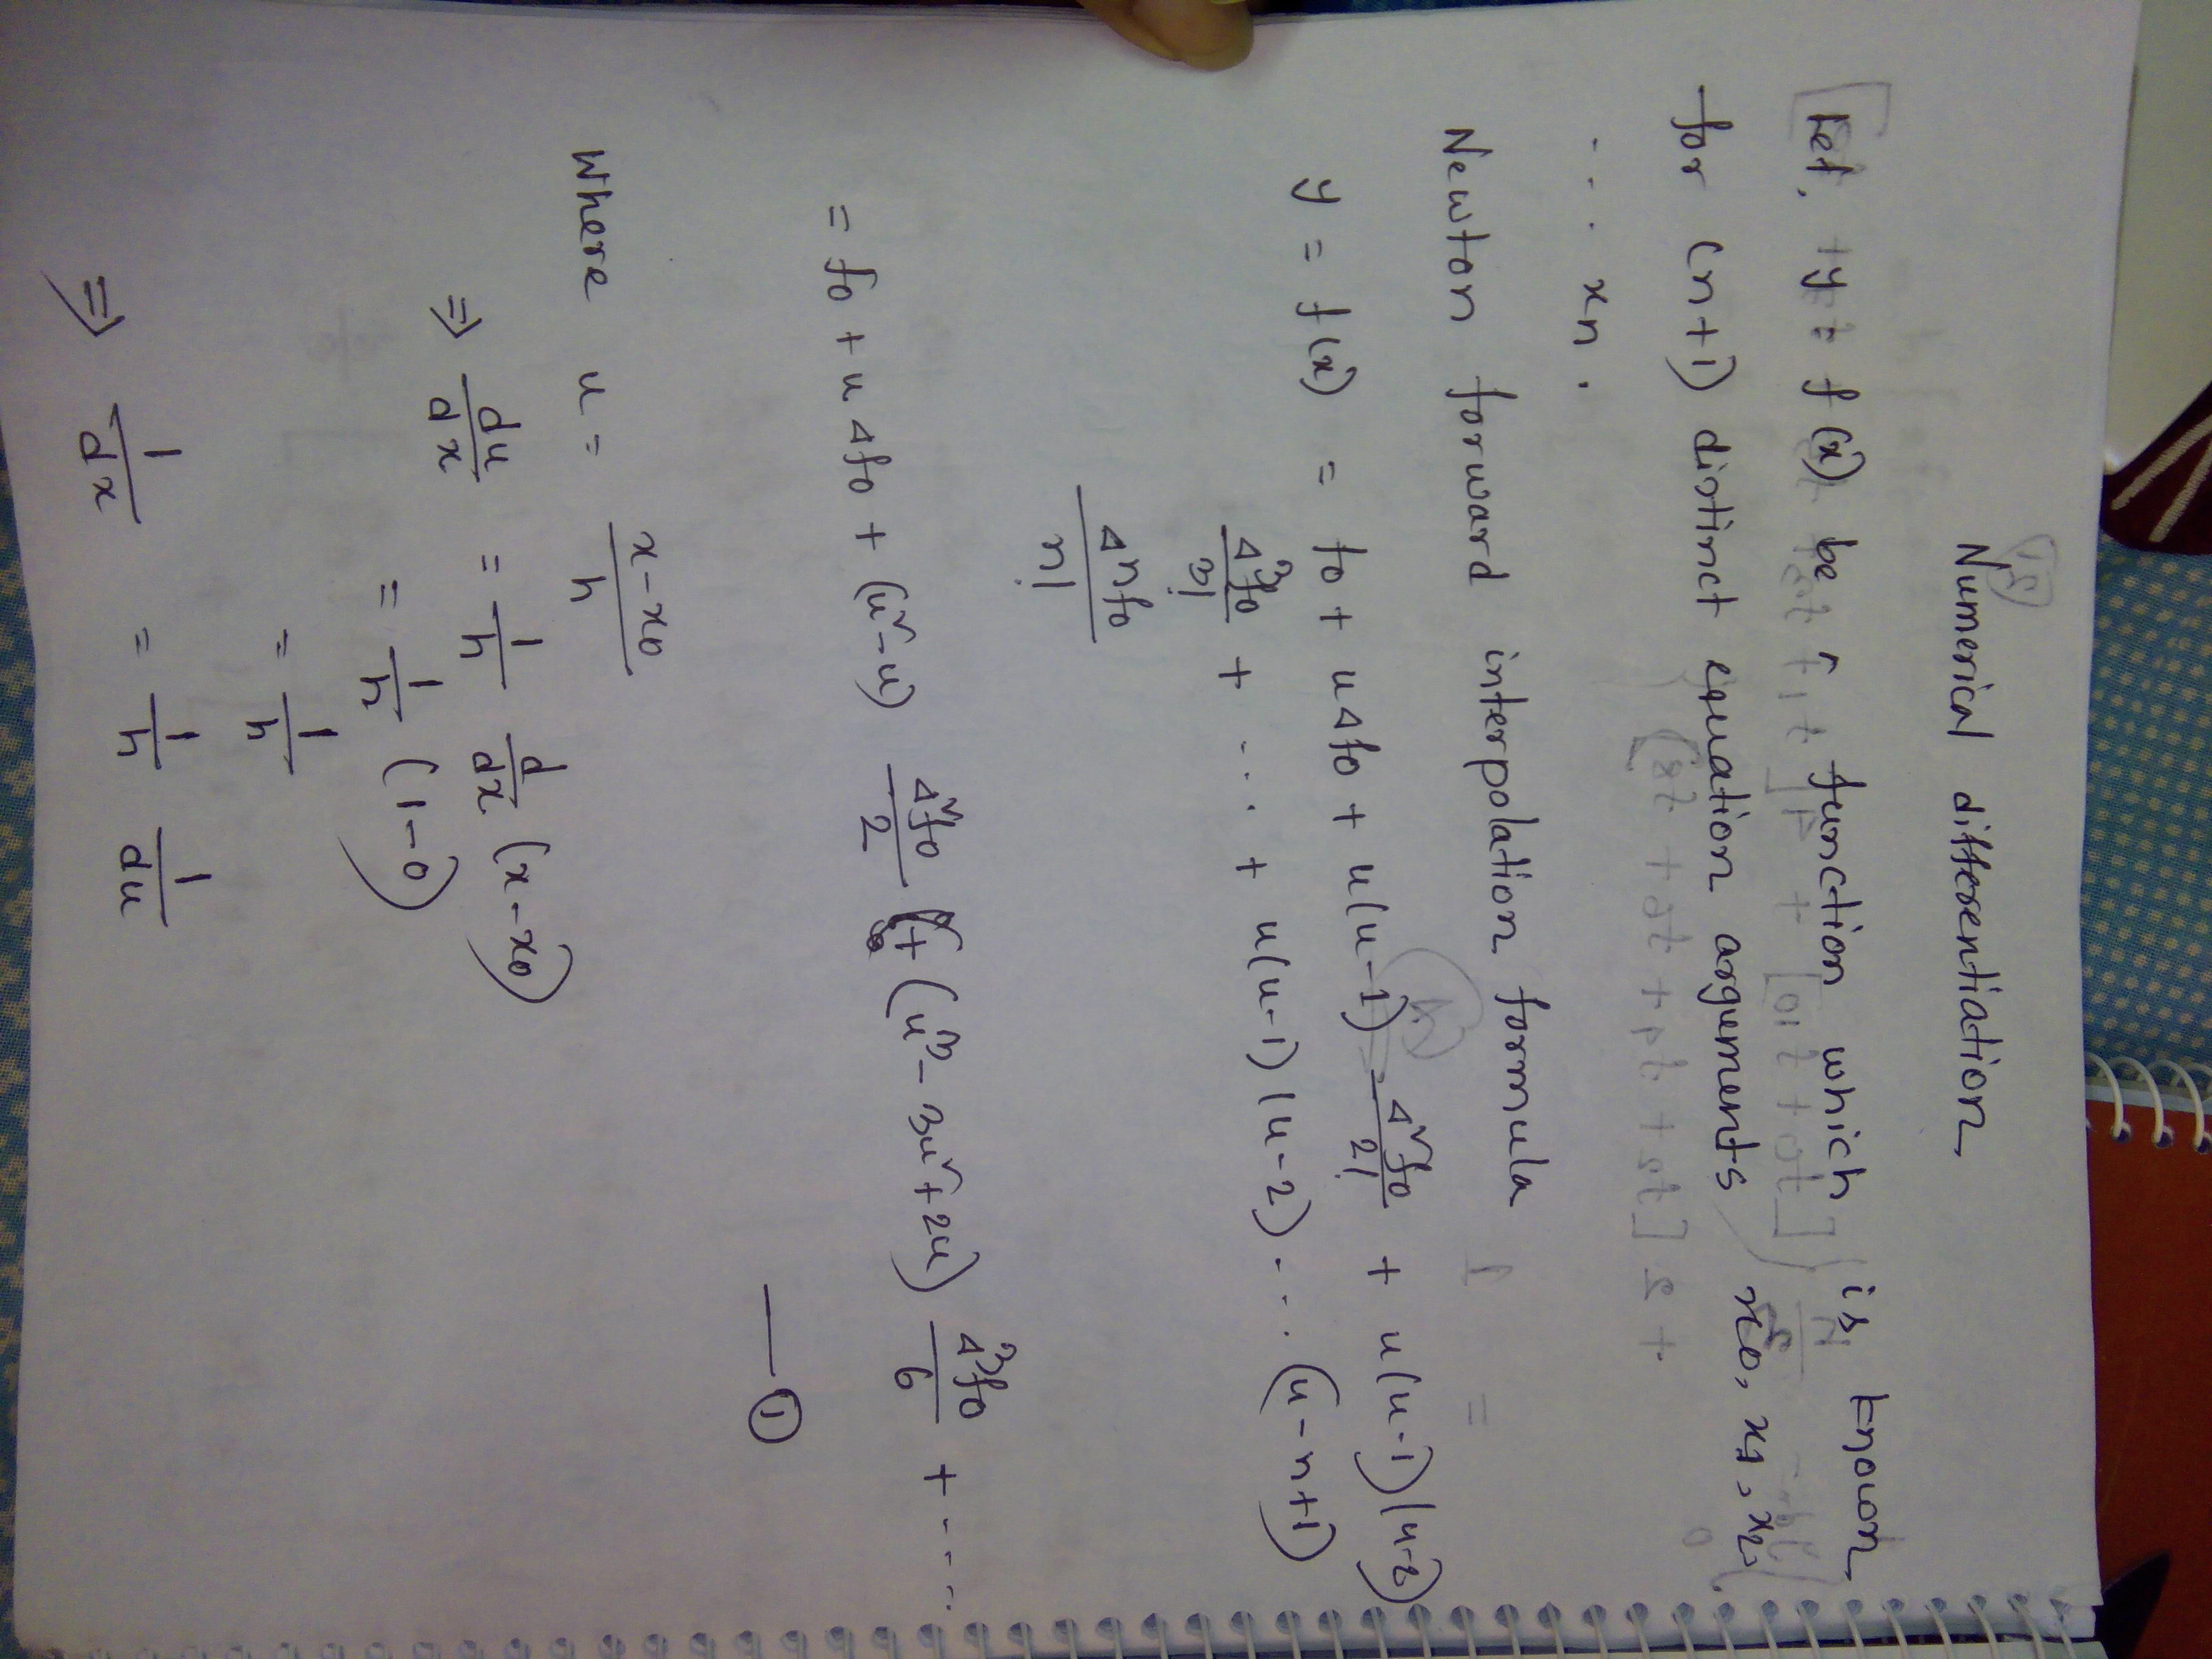 Numerical differentiation
Let, y = f(x) be ^ function which is known
for (n+1) distinct equation arguments x0, x1, x2,
... xn.
Newton forward interpolation formula
y = f(x) = f0 + uΔf0 + u(u-1) Δ²f0/2! + u(u-1)(u-2)
Δ³f0/3! + ... + u(u-1)(u-2) ... (u-n+1)
Δⁿf0/n!
= f0 + uΔf0 + (u²-u) Δ²f0/2 + (u³-3u²+2u) Δ³f0/6 + ....
①
Where u = x-x0/h
⇒ du/dx = 1/h d/dx (x-x0)
= 1/h (1-0)
= 1/h
⇒ 1/dx = 1/h 1/du